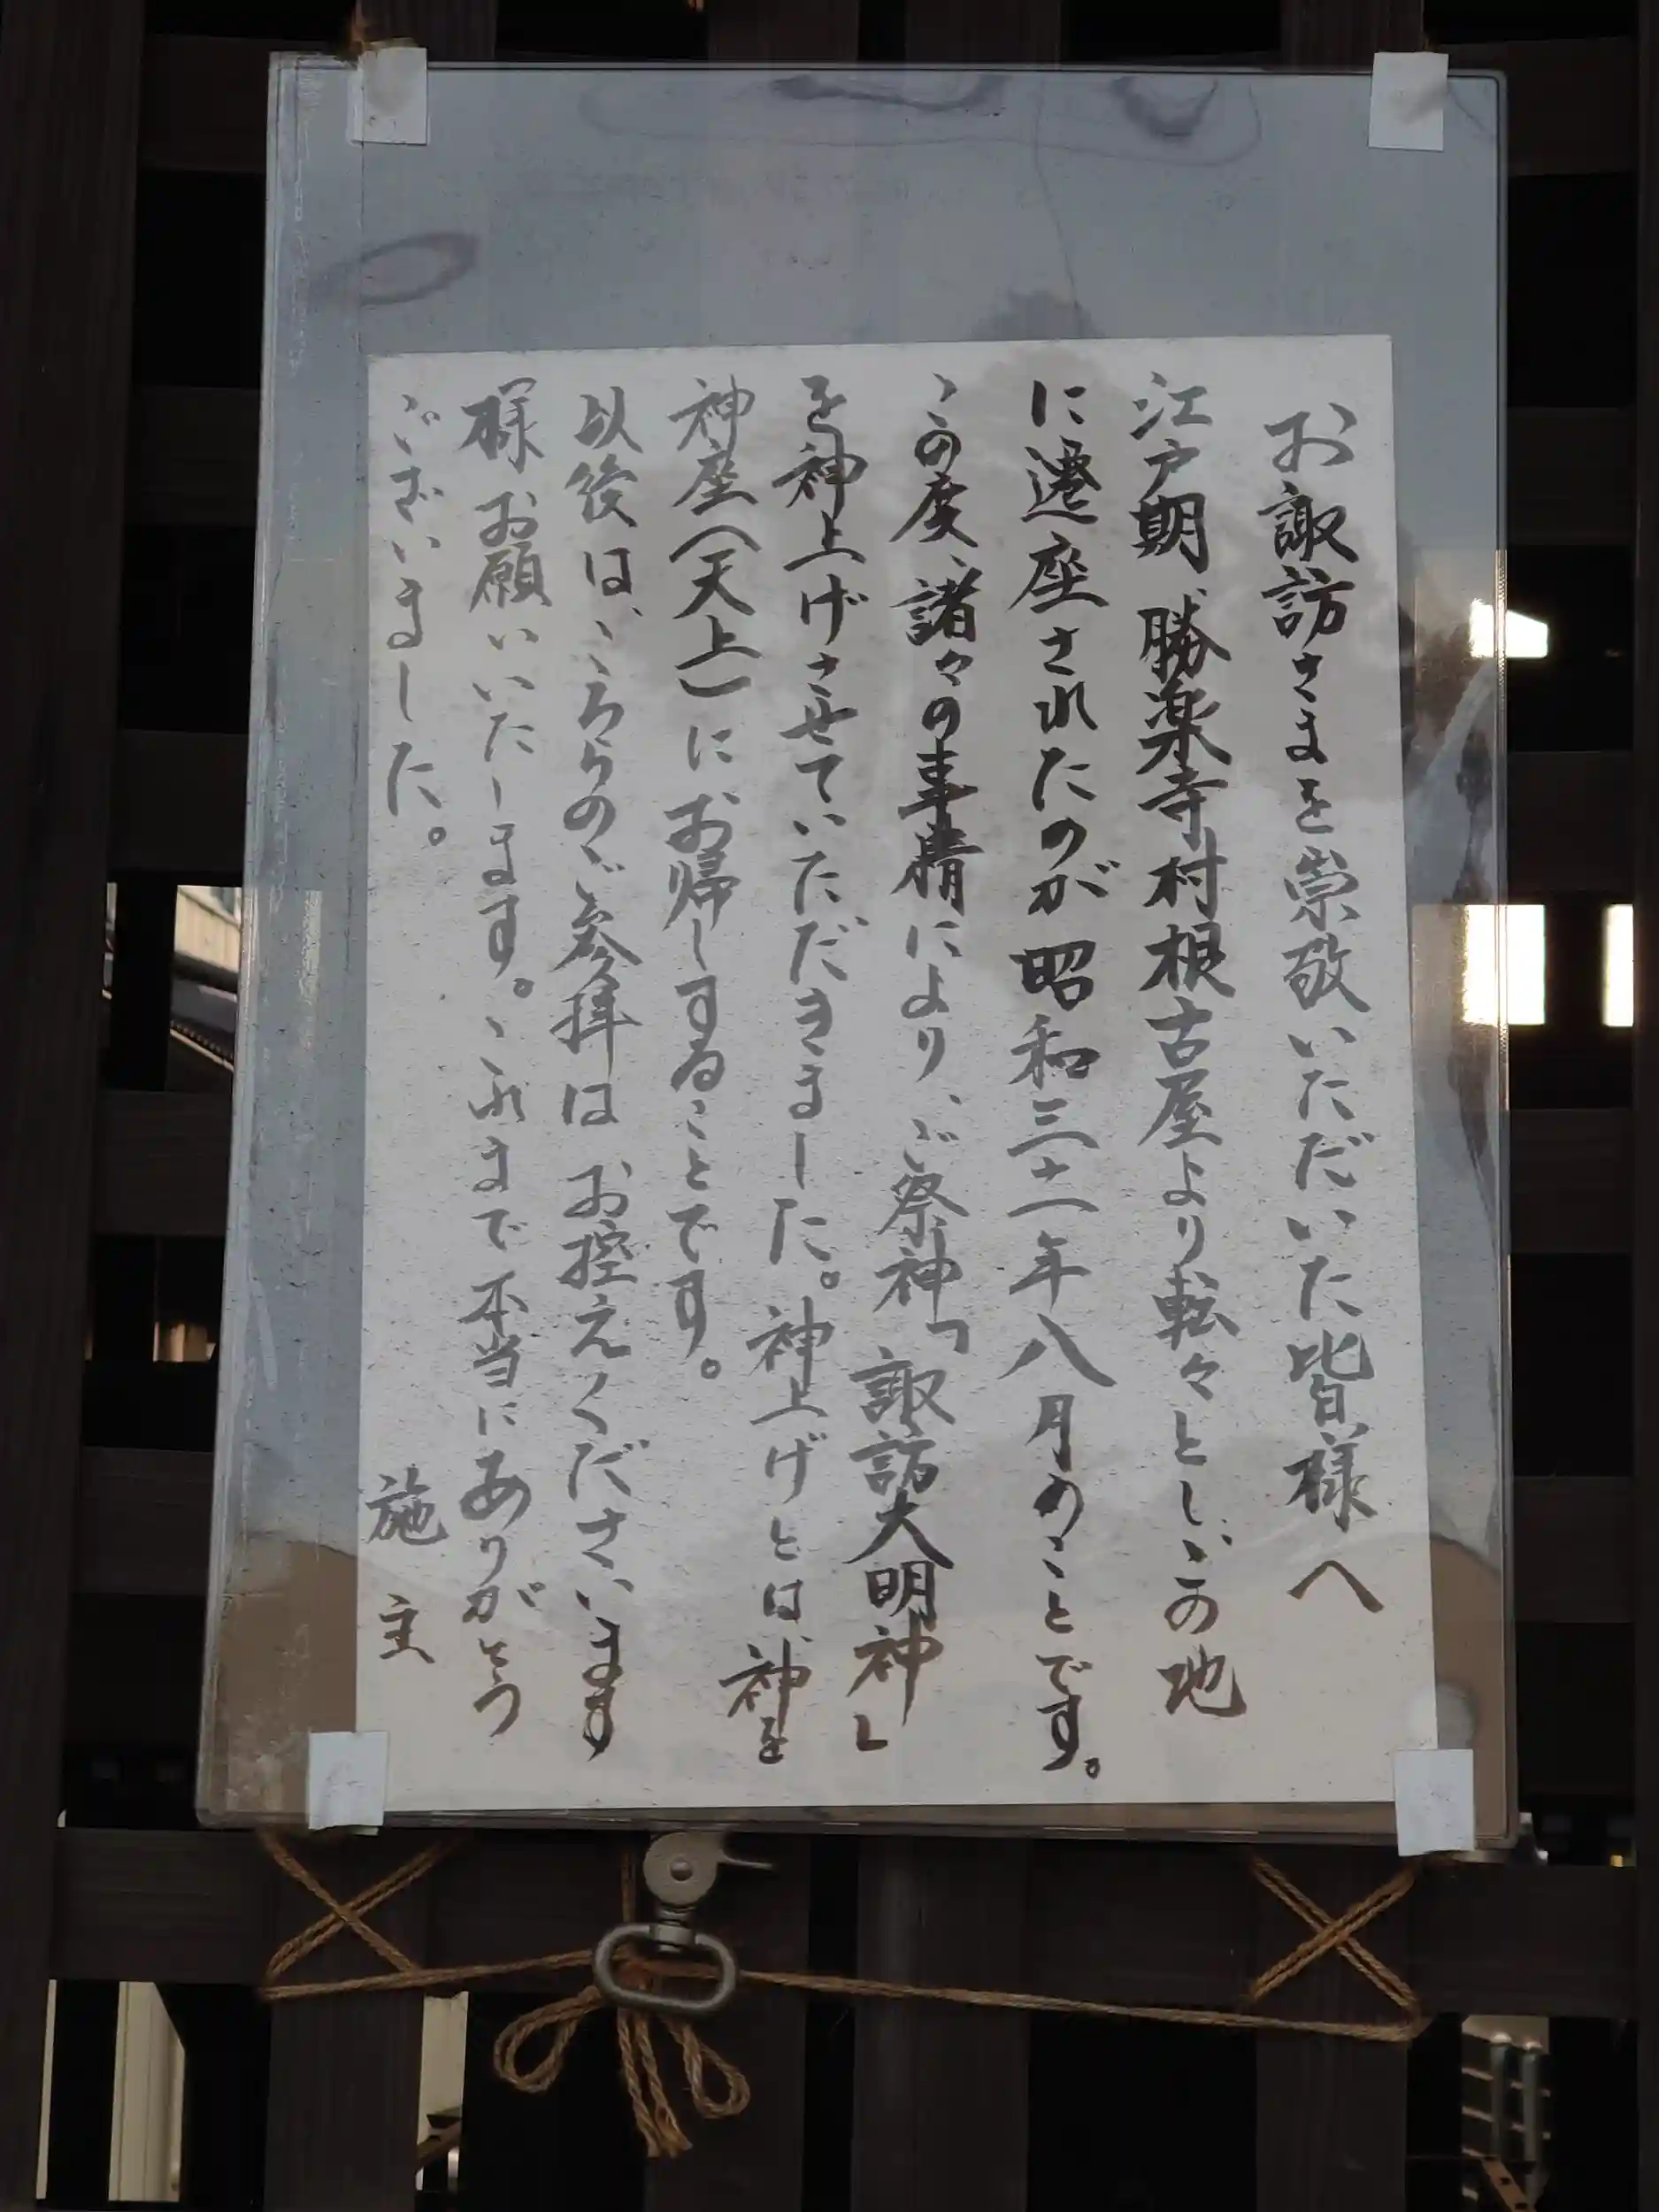 お諏訪さまを崇敬いただいた皆様へ
江戸期、勝楽寺村根古屋より転々とし、この地
に遷座されたのが昭和三十一年八月のことです。
この度、諸々の事情により、ご祭神「諏訪大明神」
を神上げさせていただきました。神上げとは、神を
神座（天上）にお帰しすることです。
以後は、こちらのご参拝はお控えくださいます
様お願いいたします。これまで本当にありがとう
ございました。
施主